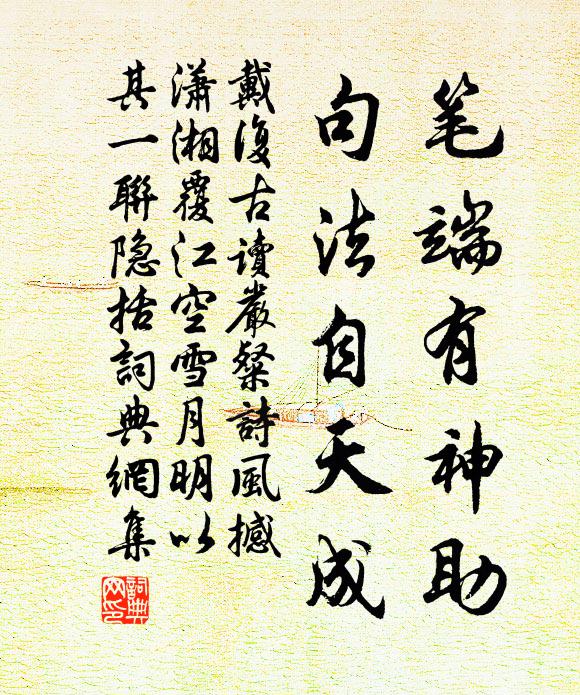 笔端有神助
句法自天成
戴復古讀嚴粲詩風撼
瀟湘覆江空雪月明以
其一聯隐括詞典網集
詞典网印